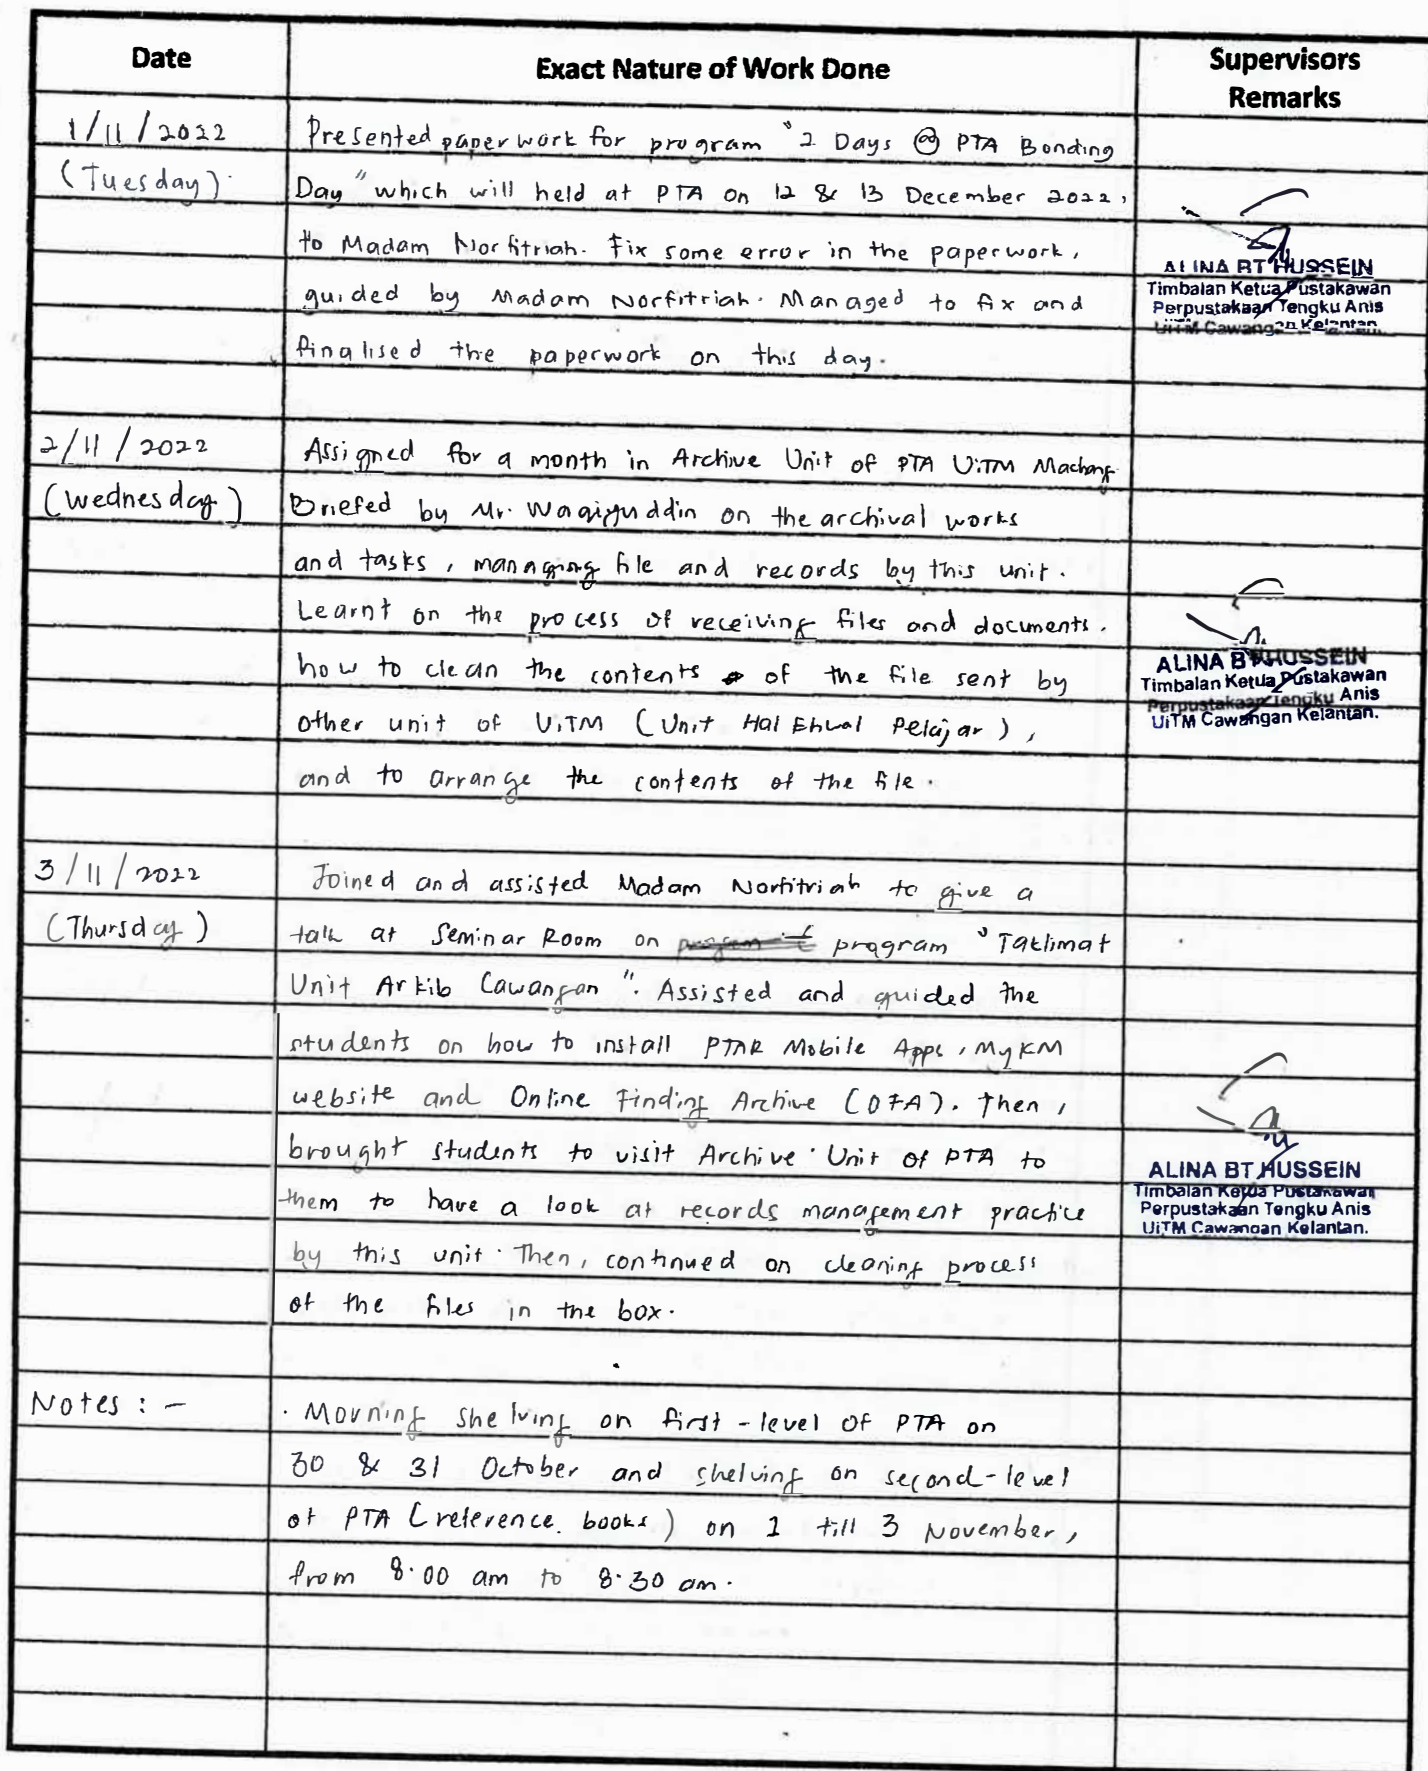 Date
Exact Nature of Work Done
Supervisors
Remarks
1/11/2022
(Tuesday)
Presented paperwork for program "2 Days @ PTA Bonding
Day" which will held at PTA on 12 & 13 December 2022,
to Madam Norfitriah. Fix some error in the paperwork,
guided by Madam Norfitriah. Managed to fix and
finalised the paperwork on this day.
ALINA BT HUSSEIN
Timbalan Ketua Pustakawan
Perpustakaan Tengku Anis
UiTM Cawangan Kelantan.
2/11/2022
(Wednesday)
Assigned for a month in Archive Unit of PTA UiTM Machang
Briefed by Mr. Waqiyuddin on the archival works
and tasks, managing file and records by this unit.
Learnt on the process of receiving files and documents.
how to clean the contents of the file sent by
other unit of UiTM (Unit Hal Ehwal Pelajar),
and to arrange the contents of the file.
ALINA BT HUSSEIN
Timbalan Ketua Pustakawan
Perpustakaan Tengku Anis
UiTM Cawangan Kelantan.
3/11/2022
(Thursday)
Joined and assisted Madam Norfitriah to give a
talk at Seminar Room on program "Taklimat
Unit Arkib Cawangan". Assisted and guided the
students on how to install PTAR Mobile Apps, MyKM
website and Online Finding Archive (OFA). Then,
brought students to visit Archive Unit of PTA to
them to have a look at records management practice
by this unit. Then, continued on cleaning process
of the files in the box.
ALINA BT HUSSEIN
Timbalan Ketua Pustakawan
Perpustakaan Tengku Anis
UiTM Cawangan Kelantan.
Notes : -
. Morning shelving on first-level of PTA on
30 & 31 October and shelving on second-level
of PTA (reference books) on 1 till 3 November,
from 8.00 am to 8.30 am.